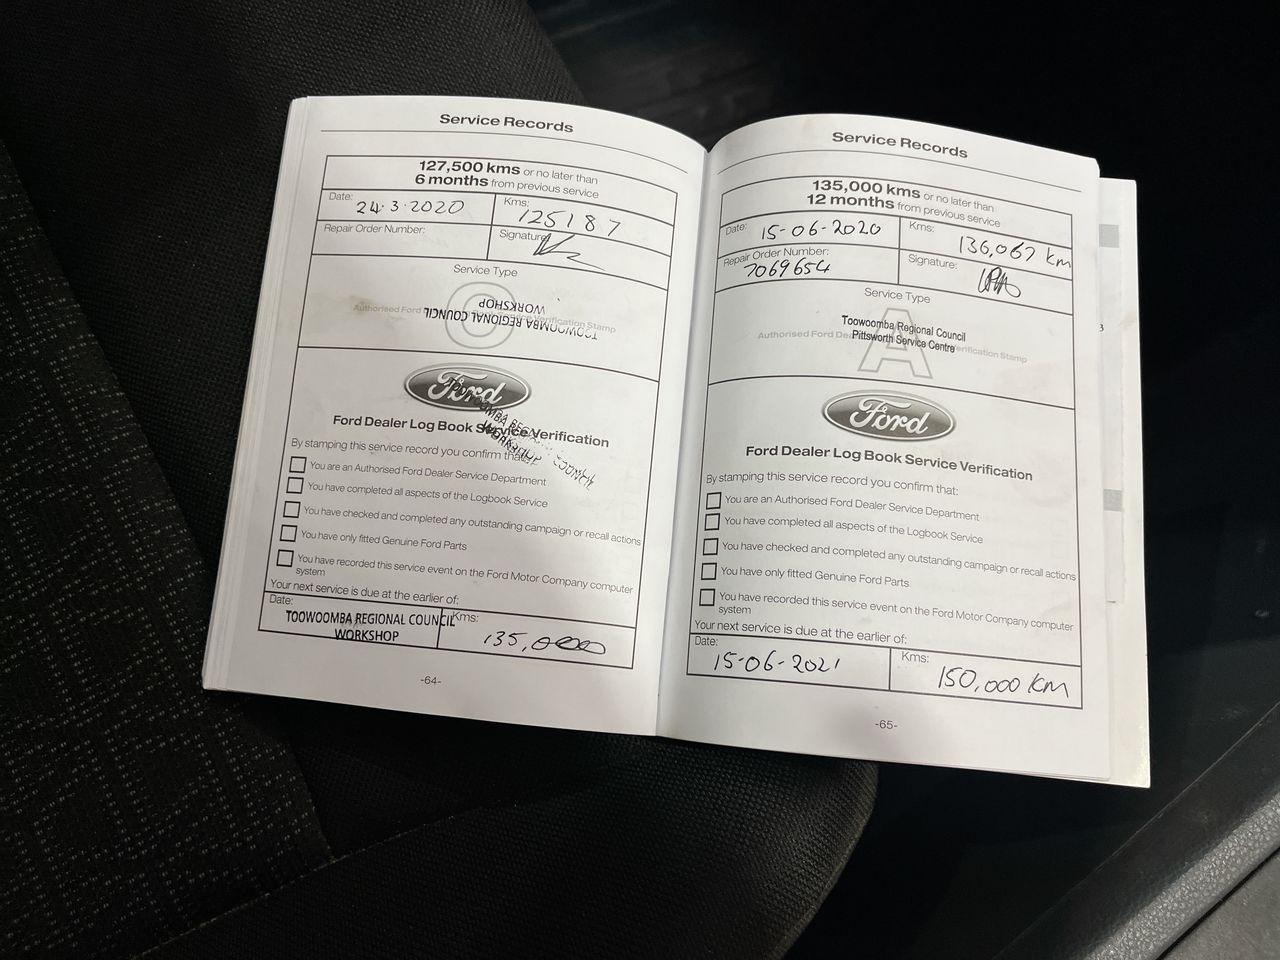 Service Records
127,500 kms or no later than
6 months from previous service
Date: 24.3.2020
Kms: 125187
Repair Order Number:
Signature
Service Type
C
Authorised Ford Verification Stamp
TOOWOOMBA REGIONAL COUNCIL
WORKSHOP
Ford
TOOWOOMBA REGIONAL COUNCIL
WORKSHOP
Ford Dealer Log Book Service Verification
By stamping this service record you confirm that:
You are an Authorised Ford Dealer Service Department
You have completed all aspects of the Logbook Service
You have checked and completed any outstanding campaign or recall actions
You have only fitted Genuine Ford Parts
You have recorded this service event on the Ford Motor Company computer
system
Your next service is due at the earlier of:
Date:
TOOWOOMBA REGIONAL COUNCIL
WORKSHOP
Kms: 135,000
-64-
Service Records
135,000 kms or no later than
12 months from previous service
Date: 15-06-2020
Kms: 136,067 km
Repair Order Number:
7069654
Signature:
Service Type
A
Toowoomba Regional Council
Authorised Ford Verification Stamp
Pittsworth Service Centre
Ford
Ford Dealer Log Book Service Verification
By stamping this service record you confirm that:
You are an Authorised Ford Dealer Service Department
You have completed all aspects of the Logbook Service
You have checked and completed any outstanding campaign or recall actions
You have only fitted Genuine Ford Parts
You have recorded this service event on the Ford Motor Company computer
system
Your next service is due at the earlier of:
Date: 15-06-2021
Kms: 150,000 KM
-65-
3